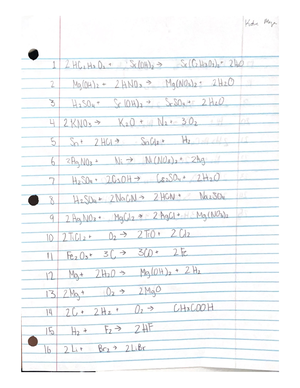 1 2HC₂H₃O₂ + Sr(OH)₂ → Sr(C₂H₃O₂)₂ + 2H₂O
2 Mg(OH)₂ + 2HNO₃ → Mg(NO₃)₂ + 2H₂O
3 H₂SO₄ + Sr(OH)₂ → SrSO₄ + 2H₂O
4 2KNO₃ → K₂O + N₂ + 3O₂
5 Sn + 2HCl → SnCl₂ + H₂
6 2AgNO₃ + Ni → Ni(NO₃)₂ + 2Ag
7 H₂SO₄ + 2CsOH → Cs₂SO₄ + 2H₂O
8 H₂SO₄ + 2NaCN → 2HCN + Na₂SO₄
9 2AgNO₃ + MgCl₂ → 2AgCl + Mg(NO₃)₂
10 2TiCl₂ + O₂ → 2TiO + 2Cl₂
11 Fe₂O₃ + 3C → 3CO + 2Fe
12 Mg + 2H₂O → Mg(OH)₂ + 2H₂
13 2Mg + O₂ → 2MgO
14 2C + 2H₂ + O₂ → CH₃COOH
15 H₂ + F₂ → 2HF
16 2Li + Br₂ → 2LiBr